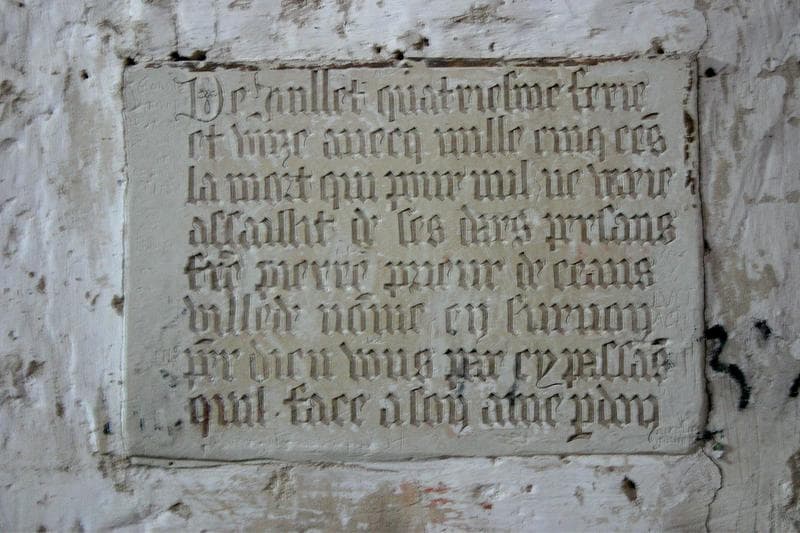 De Juillet quatriesme ferie
et unze avecq mille cinq cẽs
la mort qui pour nul ne varie
assaillit de ses dars presans
frẽ pierre prieur de ceans
villede nõme en surnoṽ
pr̃ dieu vous par cy passãs
quil face a son ame pdon